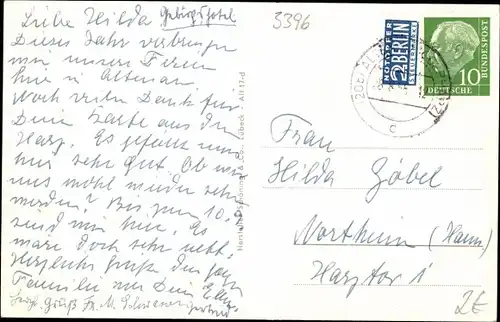 Liebe Hilda Gebirgshotel
Dieses Jahr verbringen
wir unsere Ferien
hier in Altenau
Noch vielen Dank für
Deine Karte aus dem
Harz. Es gefällt uns
hier sehr gut. Ob wir
uns wohl wieder sehn
werden? Bis zum 10.9
sind wir hier. Es
wäre doch sehr nett.
Herzliche Grüße der ganzen
Familie von Dein
Herzl. Grüße Fr. M.
Hersteller Schöning & Co., Lübeck Alt 11-d
3396
NOTOPFER
2 BERLIN
STEUERMARKE
10
DEUTSCHE
BUNDESPOST
c
Frau
Hilda Zobel
Northeim (Hann)
Harztor 1
2E